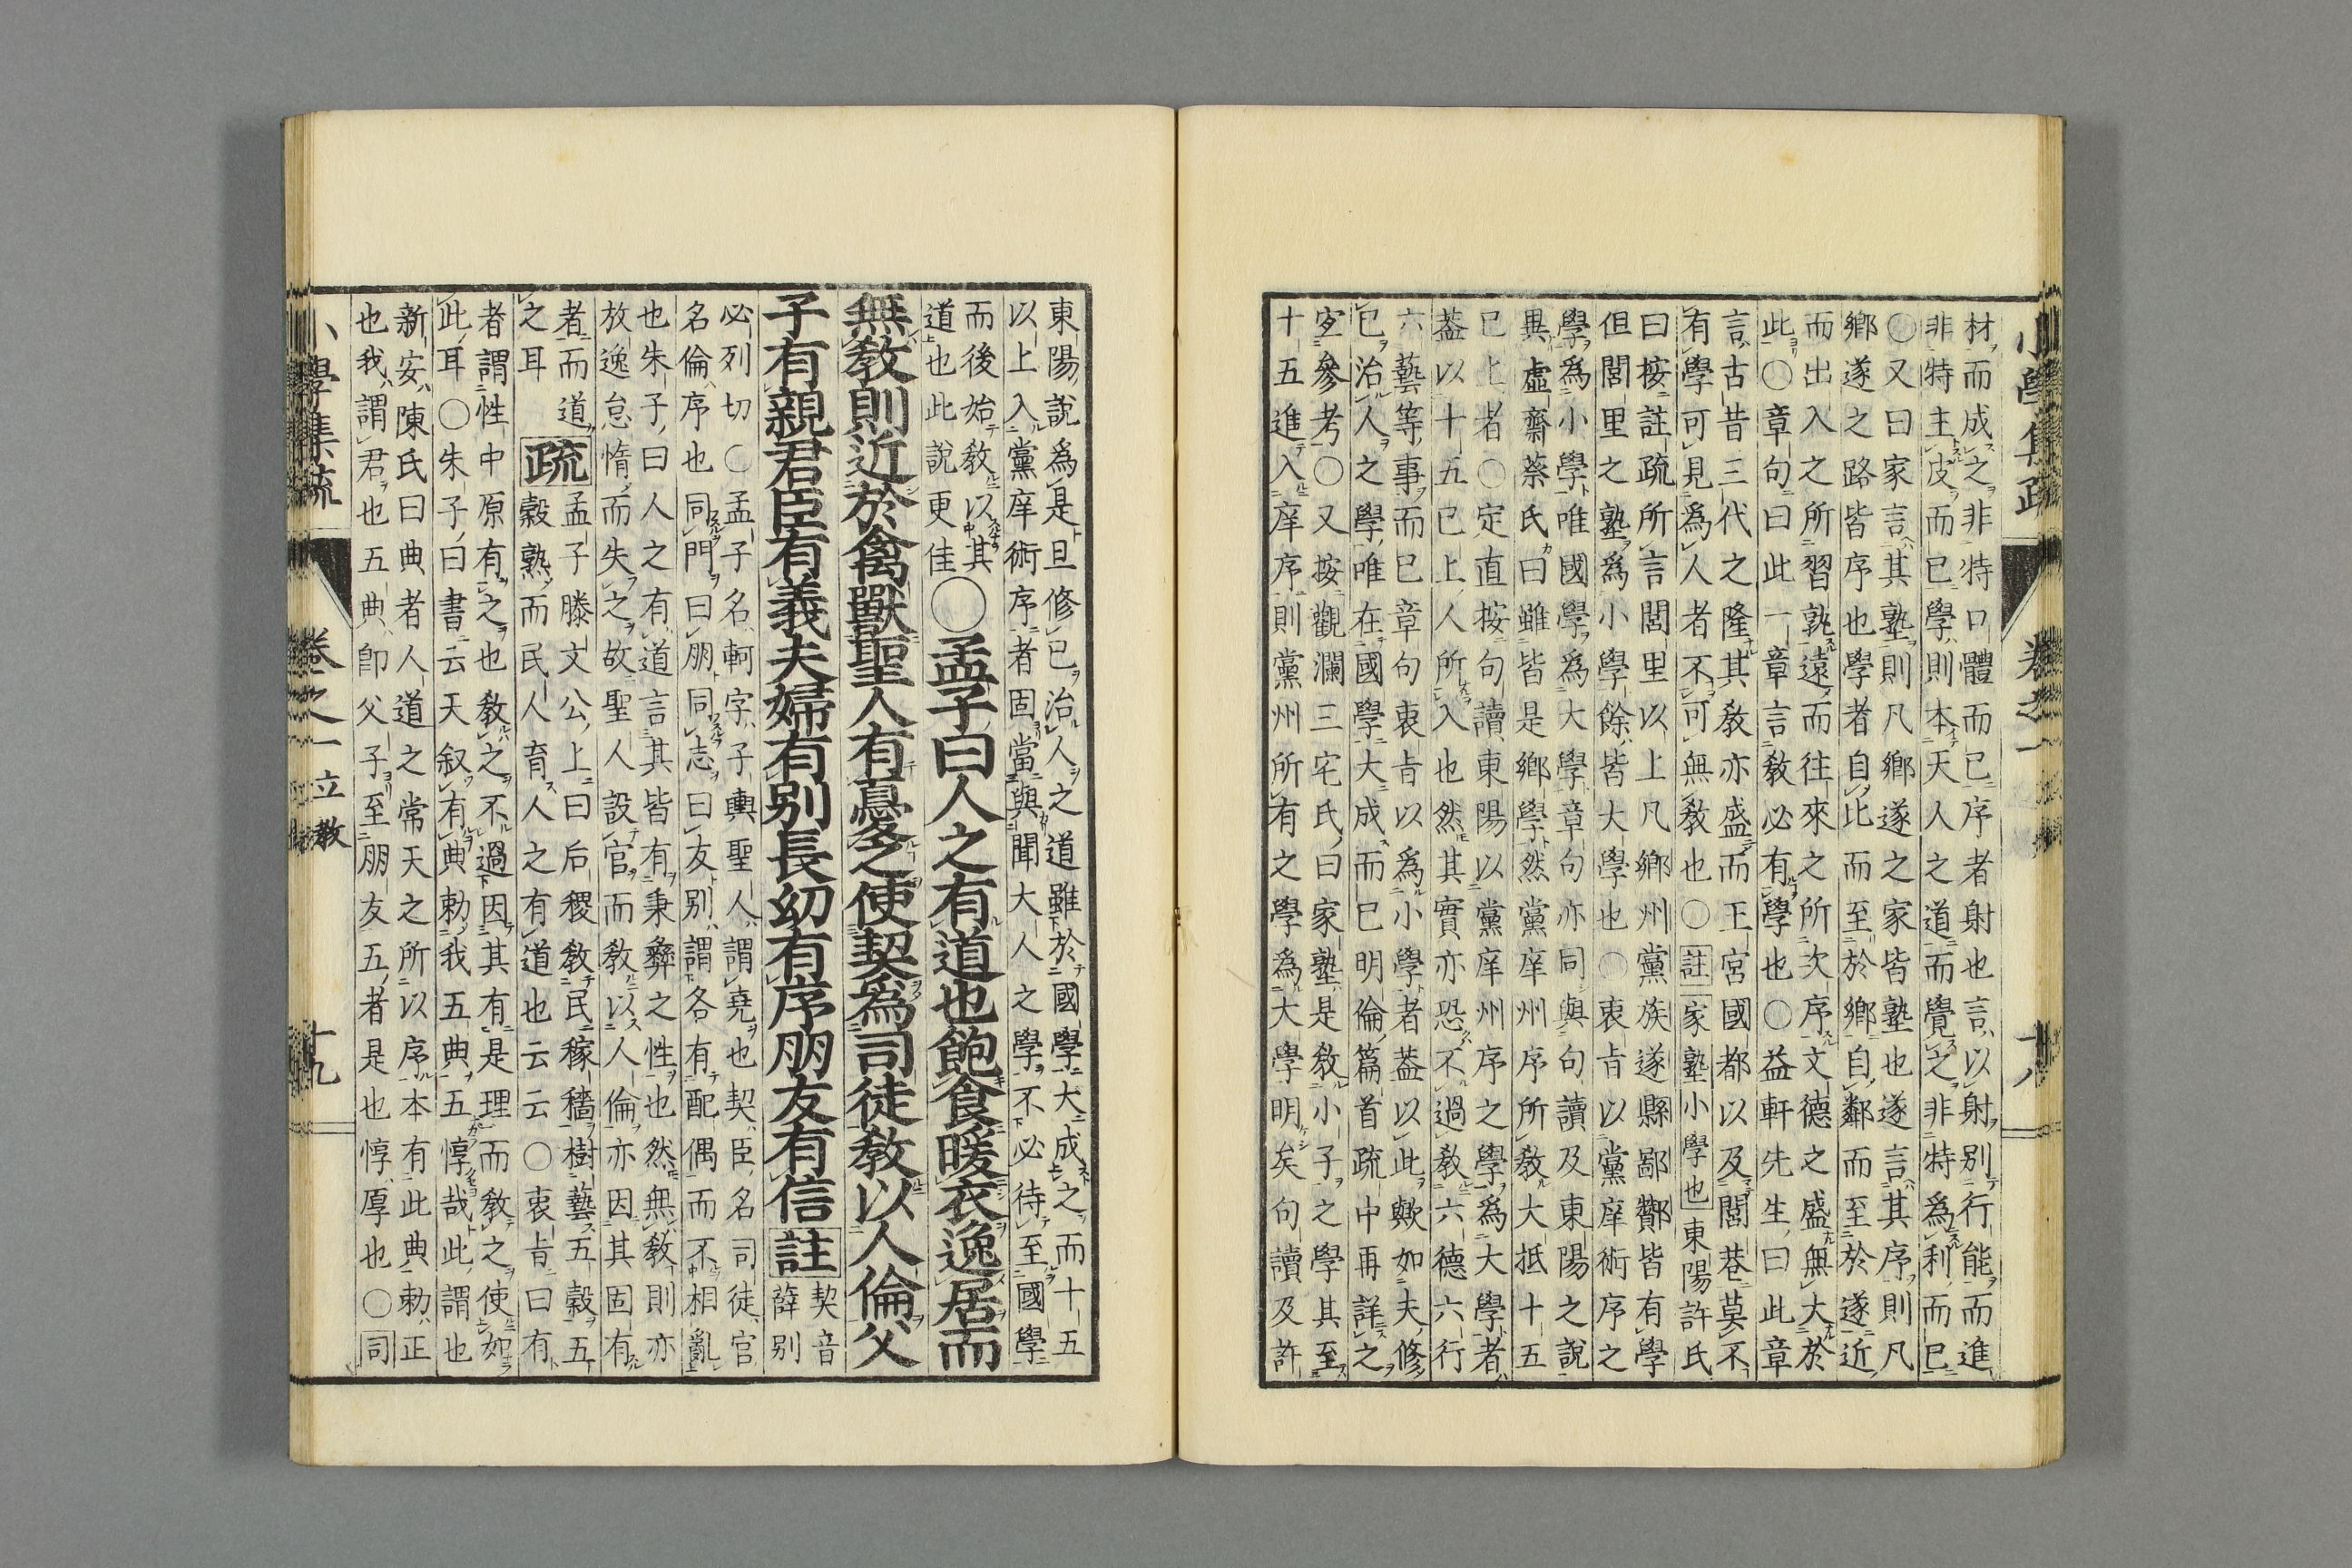 材而成之非特口體而已序者射也言以射別行能而進
非特主皮而已學則本天人之道而覺之非特為利而已
〇又曰家言其塾則凡鄉遂之家皆塾也遂言其序則凡
鄉遂之路皆序也學者自此而至於鄉自鄰而至於遂近
而出入之所習孰遠而往來之所次序文德之盛無大於
此〇章句曰此一章言教必有學也〇益軒先生曰此章
言古昔三代之隆其教亦盛而王宮國都以及閭巷莫不
有學可見為人者不可無教也〇註家塾小學也東陽許氏
曰按註疏所言閭里以上凡鄉州黨族遂縣鄙酇皆有學
但閭里之塾為小學餘皆大學也〇衷旨以黨庠術序之
學為小學唯國學為大學章句亦同與句讀及東陽之說
異虛齋蔡氏曰雖皆是鄉學然黨庠州序所教大抵十五
已上者〇定直按句讀東陽以黨庠州序之學為大學者
蓋以十五已上人所入也然其實亦恐不過教六德六行
六藝等事而已章句衷旨以為小學者蓋以此歟如夫修
已治人之學唯在國學大成而已明倫篇首疏中再詳之
宜參考〇又按觀瀾三宅氏曰家塾是教小子之學其至
十五進入庠序則黨州所有之學為大學明矣句讀及許
小學集疏 卷之一 十八
東陽說為是且修已治人之道雖於國學大成之而十五
以上入黨庠術序者固當與聞大人之學不必待至國學
而後始教以其
道也此說更佳〇孟子曰人之有道也飽食暖衣逸居而
無教則近於禽獸聖人有憂之使契為司徒教以人倫父
子有親君臣有義夫婦有別長幼有序朋友有信註契音
薛別
必列切〇孟子名軻字子輿聖人謂堯也契臣名司徒官
名倫序也同門曰朋同志曰友別謂各有配偶而不相亂
也朱子曰人之有道言其皆有秉彝之性也然無教則亦
放逸怠惰而失之故聖人設官而教以人倫亦因其固有
者而道
之耳疏孟子滕文公上曰后稷教民稼穡樹藝五穀五
穀熟而民人育人之有道也云云〇衷旨曰有
者謂性中原有之也教之不過因其有是理而教之使如
此耳〇朱子曰書云天叙有典勅我五典五惇哉此謂也
新安陳氏曰典者人道之常天之所以序本有此典勅正
也我謂君也五典卽父子至朋友五者是也惇厚也〇司
小學集疏 卷之一 立教 十九